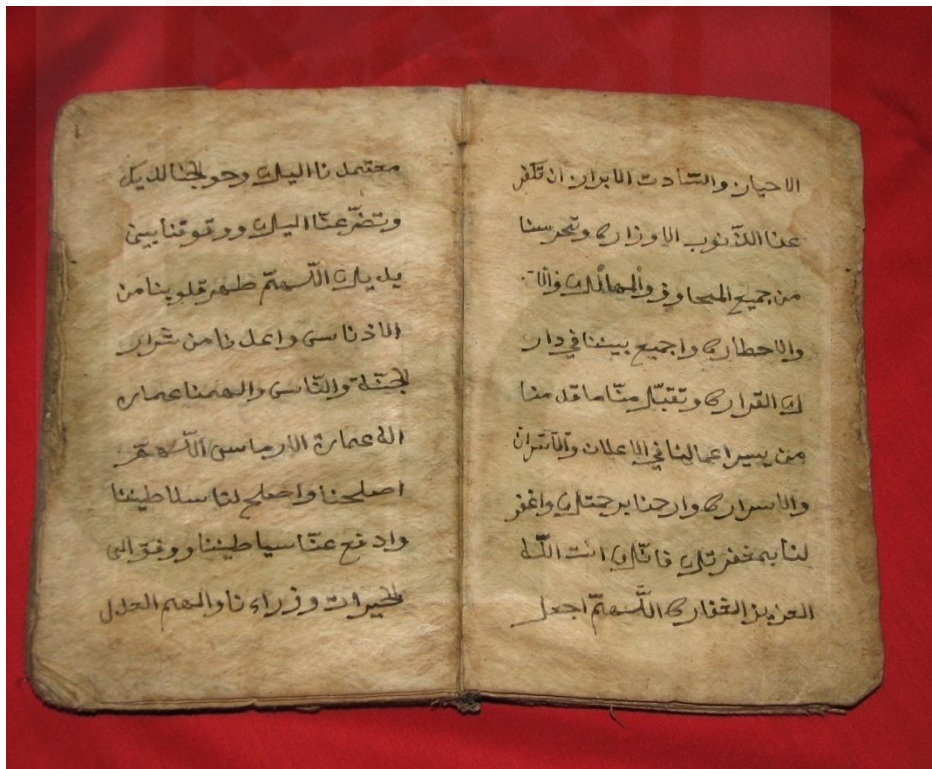 الاحيار والسّادت الابرار ان تكفر
عنا الذّنوب الاوزار وتحرسنا
من جميع المحاوف والمهالك والا
والاحطار واجميع بيننا في دار
القرار وتقبّل منّا ما قدمنا
من يسير اعمالنا في الاعلان والاسرار
والاسرار وارحمنا برحمتك واغفر
لنا بمغفرتك فانّك انت اللّه
العزيز الغفار اللّهمّ اجعل
معتمدنا اليك وحوبجنا لديك
وتضرّعنّا اليك ووقوتنا بينى
يديك اللّهمّ طهر قلوبنا من
الادناسى واعدنا من شرار
الجنّة والنّاسى والهمنا عماره
الى عمارة الارجاسى اللّهمّ
اصلحنا واصلح لنا سلاطيننا
وادفع عنّا سياطيننا ووفق الى
الخيرات وزراءنا والهم العدل